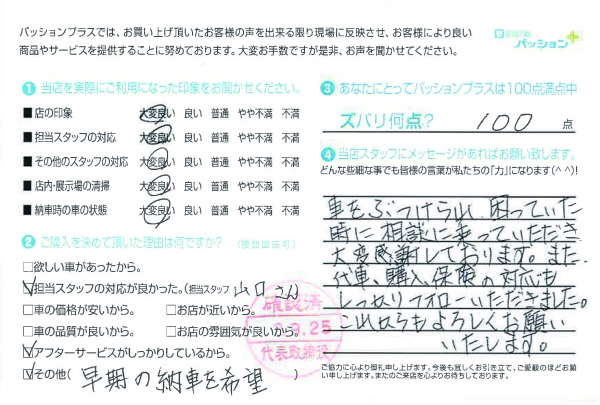 パッションプラスでは、お買い上げ頂いたお客様の声を出来る限り現場に反映させ、お客様により良い
商品やサービスを提供することに努めております。大変お手数ですが是非、お声を聞かせてください。
パッション
❶ 当店を実際にご利用になった印象をお聞かせください。
■店の印象 大変良い 良い 普通 やや不満 不満
■担当スタッフの対応 大変良い 良い 普通 やや不満 不満
■その他のスタッフの対応 大変良い 良い 普通 やや不満 不満
■店内・展示場の清掃 大変良い 良い 普通 やや不満 不満
■納車時の車の状態 大変良い 良い 普通 やや不満 不満
❷ ご購入を決めて頂いた理由は何ですか? (複数回答可)
□欲しい車があったから。
☑担当スタッフの対応が良かった。(担当スタッフ 山口さん)
□車の価格が安いから。 □お店が近いから。
□車の品質が良いから。 □お店の雰囲気が良いから。
☑アフターサービスがしっかりしているから。
☑その他( 早期の納車を希望 )
確認済
9.25
代表取締役
❸ あなたにとってパッションプラスは100点満点中
ズバリ何点? 100 点
❹ 当店スタッフにメッセージがあればお願い致します。
どんな些細な事でも皆様の言葉が私たちの「力」になります(^^)!
車をぶつけられ、困っていた
時に相談に乗っていただき
大変感謝しております。また
代車、購入、保険の対応も
しっかりフォローいただきました。
これからもよろしくお願い
いたします。
ご協力に心より御礼申し上げます。今後も宜しくお引き立て、ご愛顧のほどお願
い申し上げます。またのご来店を心よりお待ちしております。